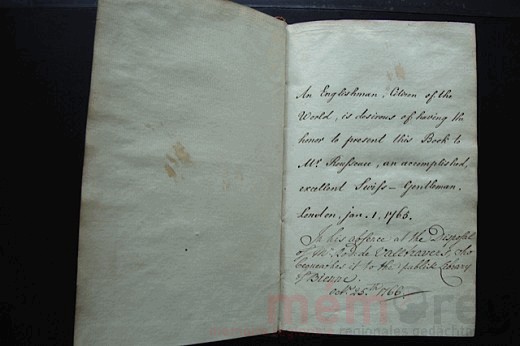 An Englishman, Citizen of the
World, is desirous of having the
honor to present this Book to
Mr. Rousseau, an accomplished,
excellent Swiss - Gentleman.
London. jan. 1. 1765.
In his absence at the Disposal
of Mr. de Vallravers, who
bequeathes it to the publick Library
of Bienne.
Octr. 25th 1766.
memreg
regionales gedächtnis